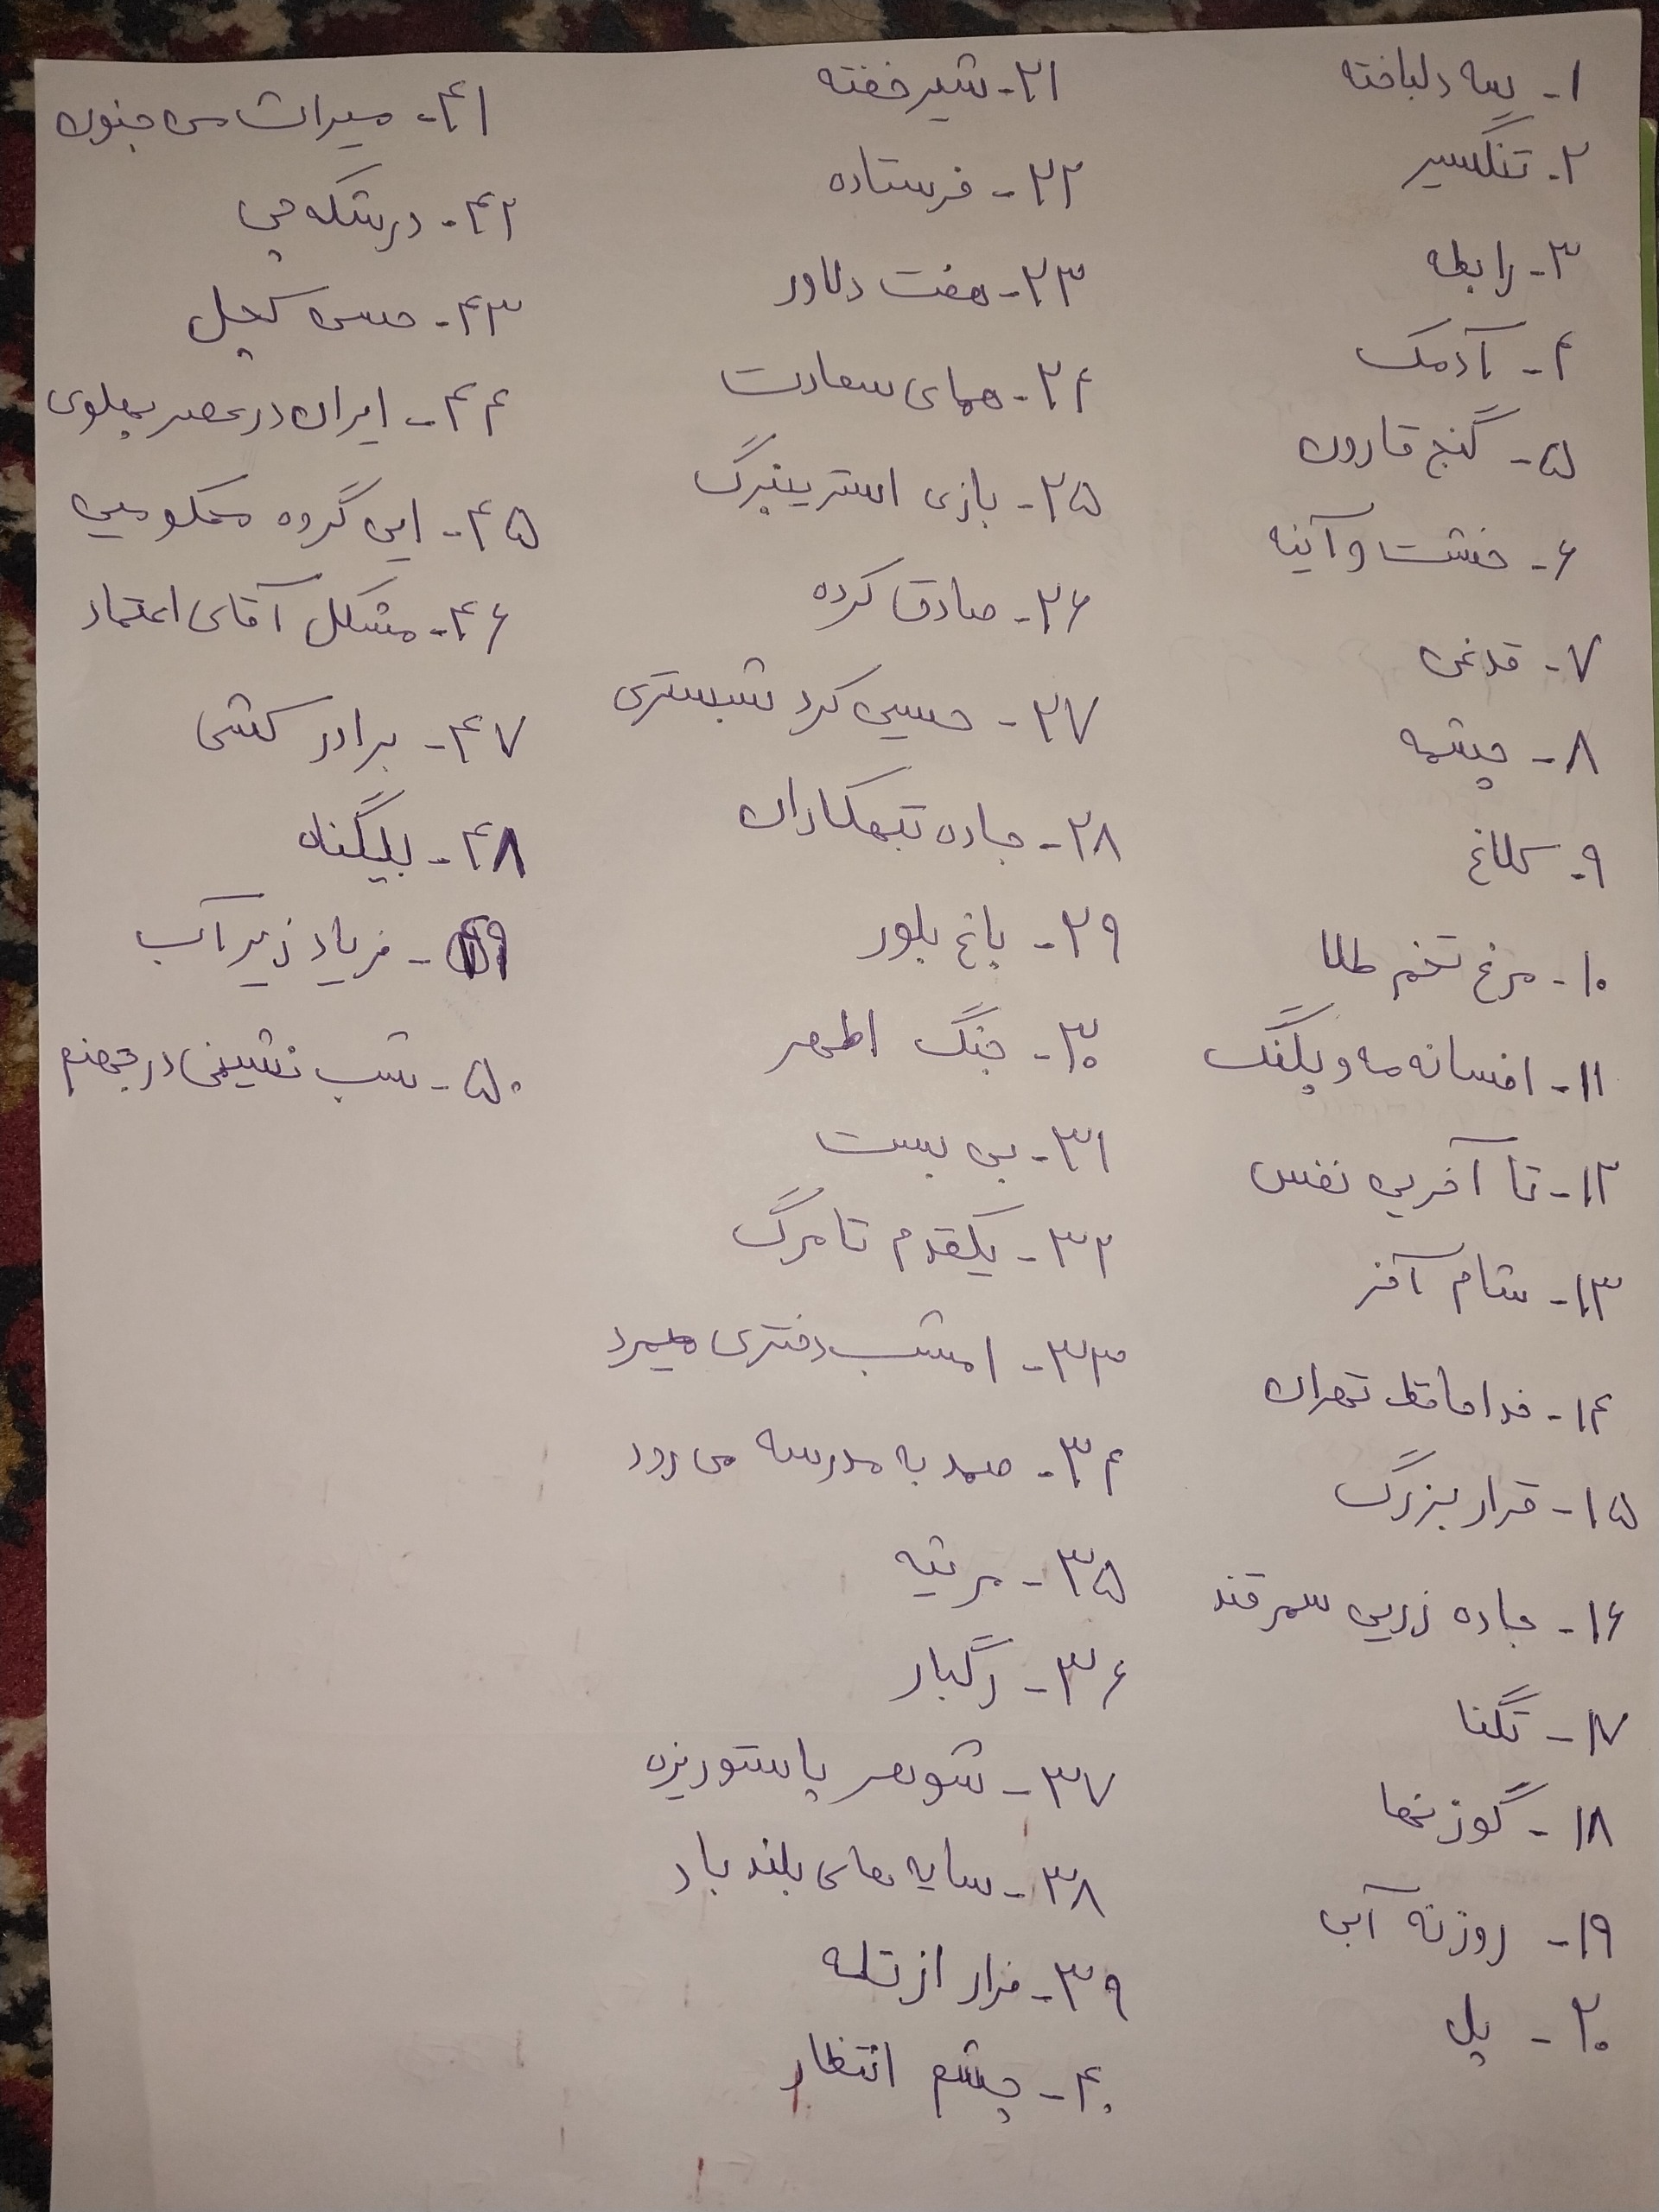 ۱- سه دلباخته
۲- تنگسیر
۳- رابطه
۴- آدمک
۵- گنج قارون
۶- خشت و آینه
۷- قدغن
۸- چشمه
۹- کلاغ
۱۰- مرغ تخم طلا
۱۱- افسانه مه و پلنگ
۱۲- تا آخرین نفس
۱۳- شام آخر
۱۴- خداحافظ تهران
۱۵- قرار بزرگ
۱۶- جاده زرین سمرقند
۱۷- تنگنا
۱۸- گوزنها
۱۹- روزنه آبی
۲۰- پل
۲۱- شیر خفته
۲۲- فرستاده
۲۳- هفت دلاور
۲۴- همای سعادت
۲۵- بازی استرینبرگ
۲۶- صادق کرده
۲۷- حسین کرد شبستری
۲۸- جاده تبهکاران
۲۹- باغ بلور
۳۰- جنگ اطهر
۳۱- بن بست
۳۲- یکقدم تا مرگ
۳۳- امشب دختری میمیرد
۳۴- صمد به مدرسه می رود
۳۵- مرثیه
۳۶- رگبار
۳۷- شوهر پاستوریزه
۳۸- سایه های بلند باد
۳۹- فرار از تله
۴۰- چشم انتظار
۴۱- میراث من جنون
۴۲- درشکه چی
۴۳- حسن کچل
۴۴- ایران در عصر پهلوی
۴۵- این گروه محکومین
۴۶- مشکل آقای اعتماد
۴۷- برادر کشی
۴۸- بیگناه
۴۹- فریاد زیر آب
۵۰- شب نشینی در جهنم